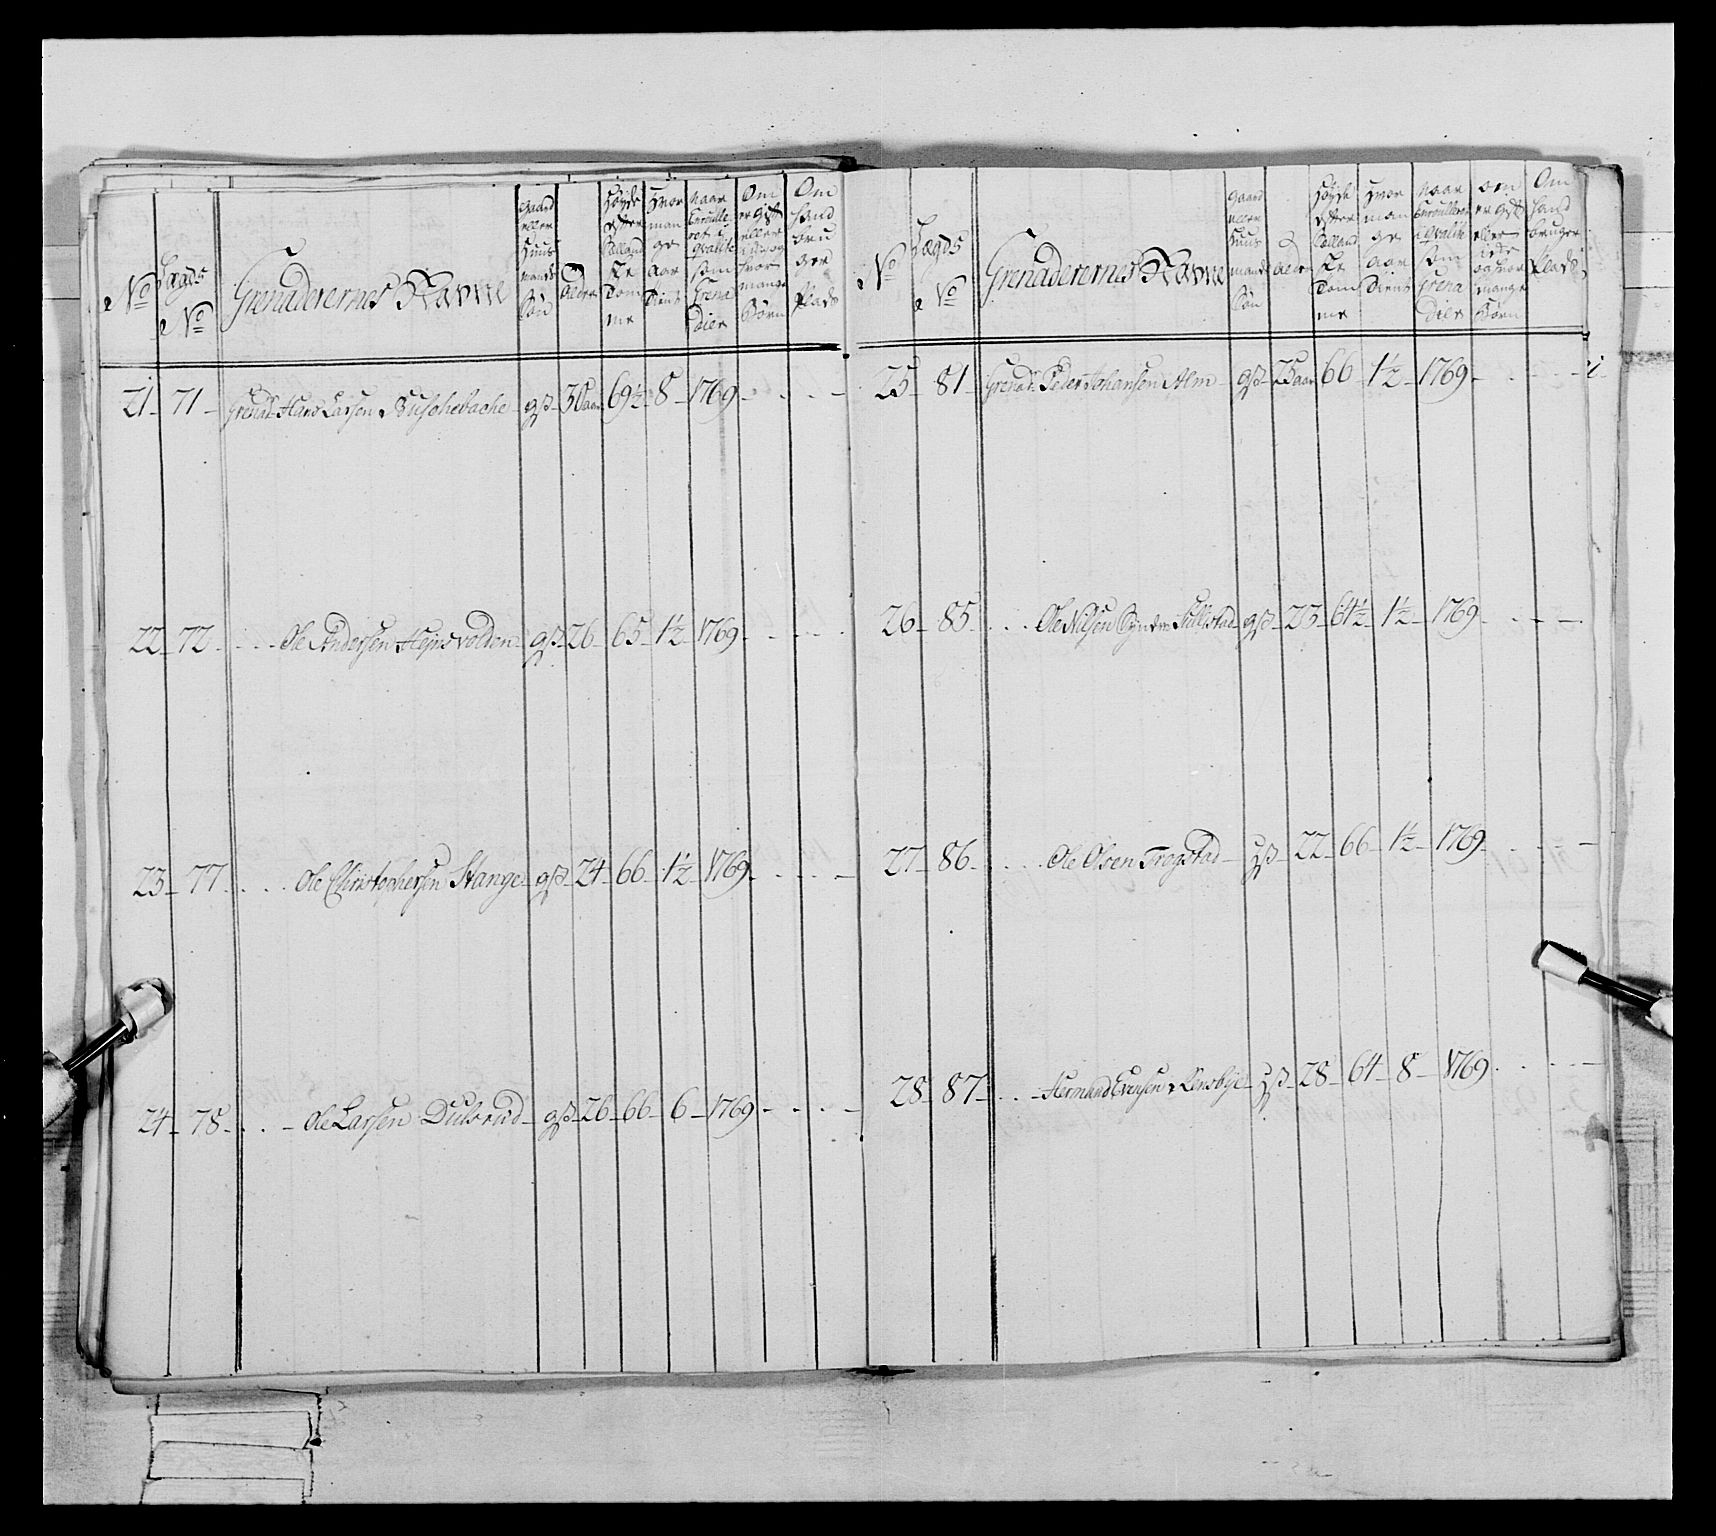 No
Lægds No
Grenaderernes Navne
Gaard eller Huus mands Søn
Alder
Høyde efter Sællands ke Tom me
Hvor man ge Aar Tient
naar Enroulle ret i Qvalite som Grena dier
Om er gift eller hvor mange Børn
Om hand bru ger Plads
21 - 71 - Grenad. Hans Larsen - gß - 30 aar 69½ - 8 - 1769 - - - -
22 - 72 - - - Ole Andersen Hejnsvolden - gß - 26 - 65 - 1½ - 1769 - - - -
23 - 77 - - - Ole Christophersen Stange - gß - 24 - 66 - 1½ - 1769 - - - -
24 - 78 - - - Ole Larsen Dulsrud - gß - 26 - 66 - 6 - 1769 - - - -
No
Lægds No
Grenaderernes Navne
Gaard eller Huus mands Søn
Alder
Høyde efter Sælland ske Tom me
Hvor man ge aar Tient
naar Enrulleret i Qvalite som Grena dier
om er gift eller og hvor mange Børn
Om hand bruger Plads
25 - 81 - Grenad. Peder Johansen Alm - gß - 25 aar 66 - 1½ - 1769 - - - -
26 - 85 - - - Ole Nilsen - gß - 23 - 64½ - 1½ - 1769 - - - -
27 - 86 - - - Ole Olsen Trogstad - hß - 22 - 66 - 1½ - 1769 - - - -
28 - 87 - - - Hermand Evensen - hß - 28 - 64 - 8 - 1769 - - - -